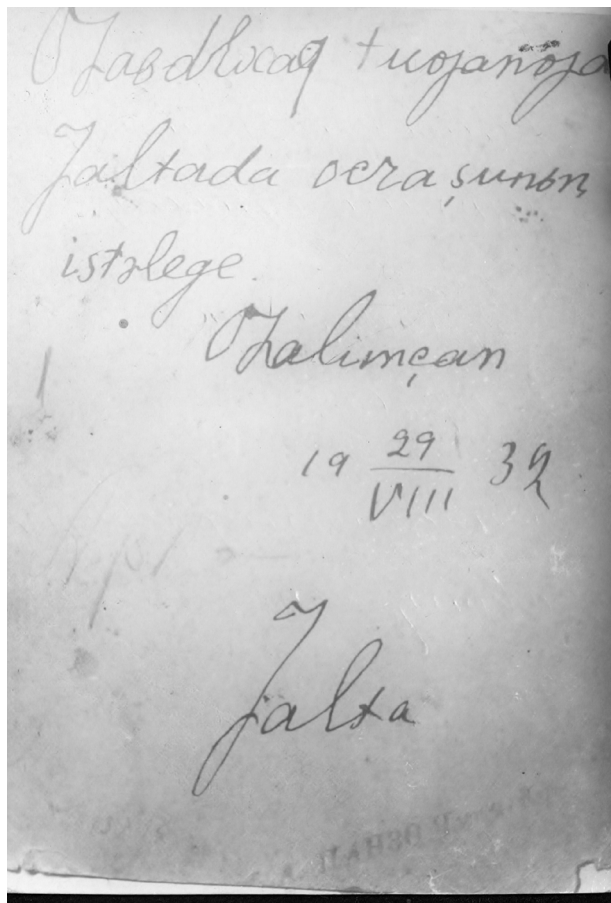 Ƣabdlxaq tuƣanƣa
Jaltada ocraşunьꞑ
istəlege
Ƣalimçan
19 29/VIII 32
Jalta